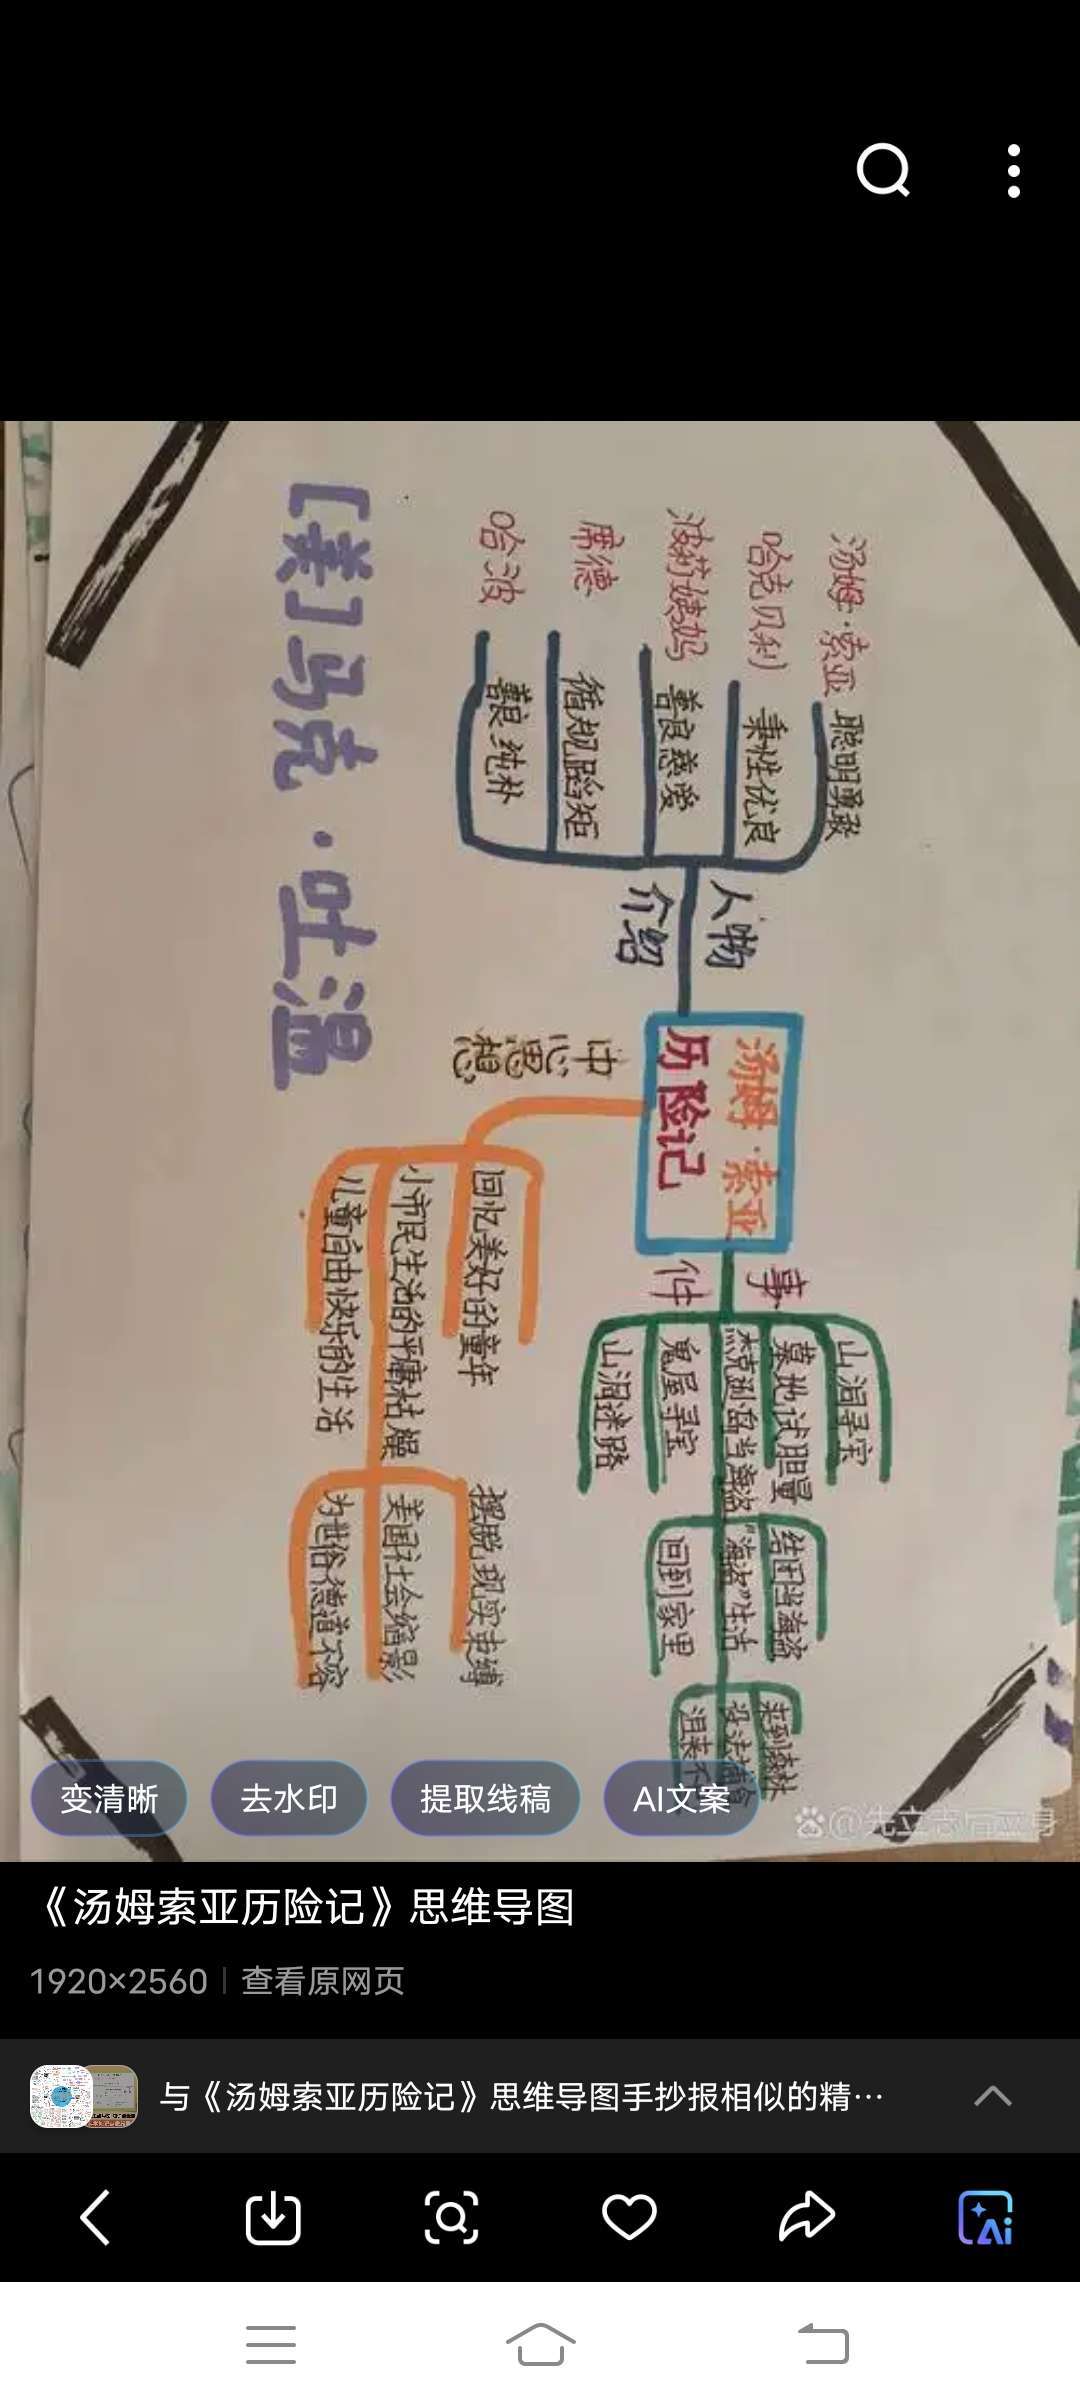 汤姆·索亚
历险记
人物
介绍
汤姆·索亚 聪明勇敢
哈克贝利 秉性优良
波莉姨妈 善良慈爱
席德 循规蹈矩
哈波 善良 纯朴
事
件
山洞寻宝
墓地试胆量
杰克逊岛当海盗
鬼屋寻宝
山洞迷路
结团当海盗
"海盗"生活
回到家里
来到森林
中心思想
回忆美好的童年
小市民生活的平庸枯燥
儿童自由快乐的生活
摆脱现实束缚
美国社会缩影
为世俗德道不容
[美]马克·吐温
变清晰
去水印
提取线稿
AI文案
@先立志后立身
《汤姆索亚历险记》思维导图
1920×2560 查看原网页
与《汤姆索亚历险记》思维导图手抄报相似的精…
Ai